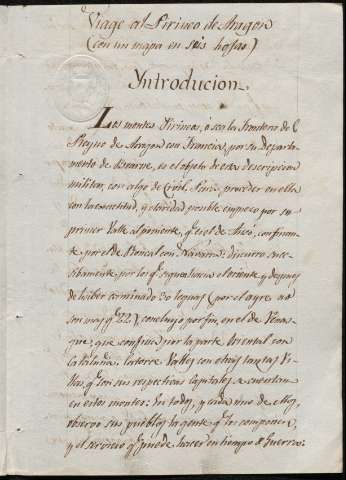 Viage al Pirineo de Aragon
(con un mapa en seis hojas.)
Yntroducion.
Los montes Pirineos, ó sea la frontera del
Reyno de Aragon con Francia, por su Departa-
mento de Bearne, es el objeto de esta descripcion
militar, con algo de Civil. Para proceder en ella
con la exactitud, y claridad posible empiezo por su
primer Valle al poniente, qe. es el de Ansó, confinan-
te por el de Roncal con Navarra: discurro suce-
sibamente por los qe. siguen hacia el oriente y despues
de haber caminado 30 leguas (por el ayre no
son mas qe. 22), concluyo por fin, en el de Venas-
que; que confina por la parte oriental con
Cataluña. Catorce Valles con otras tantas Vi-
llas, qe. son sus respectivas Capitales se cuentan
en estos montes: En todos, y cada uno de ellos,
observo sus pueblos la gente qe. los componen,
y el servicio qe. puede hacer en tiempo de Guerra: